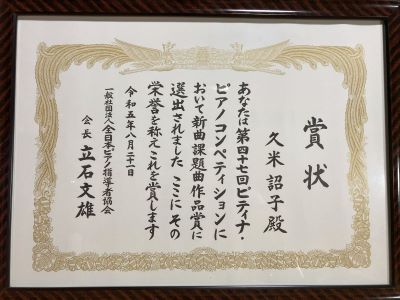 賞状
久米詔子殿
あなたは第四十七回ピティナ・
ピアノコンペティションに
おいて新曲課題曲作品賞に
選出されました ここに その
栄誉を称えこれを賞します
令和五年八月二十一日
一般社団法人全日本ピアノ指導者協会
会長 立石文雄